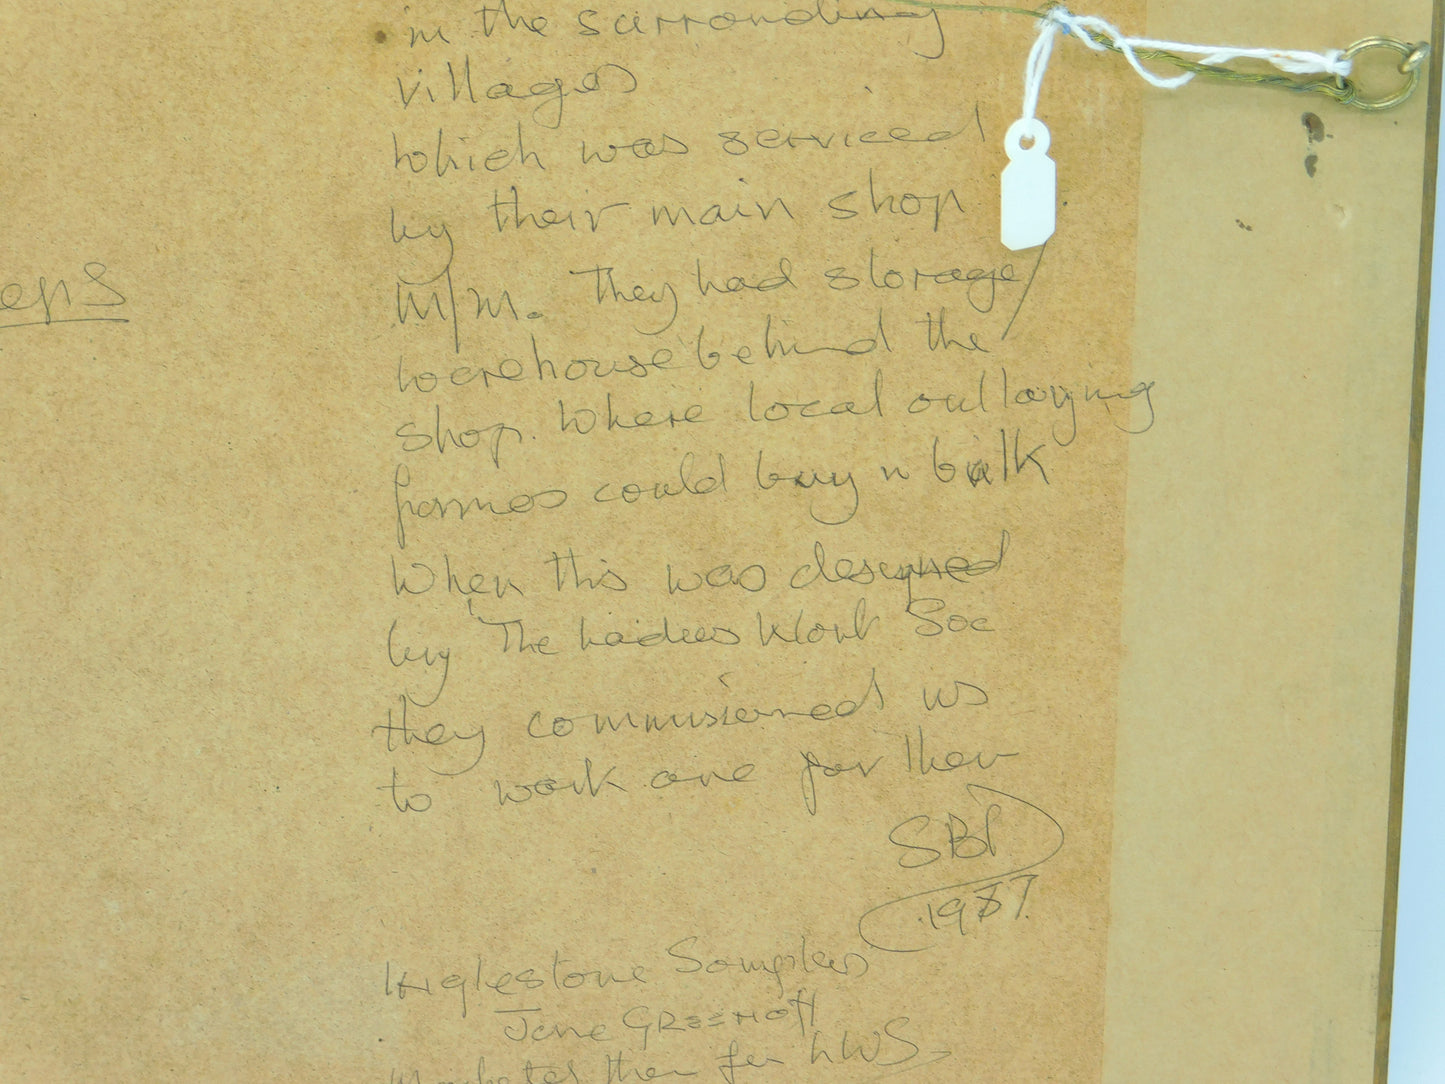 in the surronding
villages
which was serviced
by their main shop
M/M. They had storage/
warehouse behind the
shop. Where local outlaying
farmes could buy in bulk
When this was designed
by 'The Ladies Work Soc
they commisioned us
to work one for them
SBP
1987
Inglestone Samplers
Jane GREENOFF
Marketed them for LWS